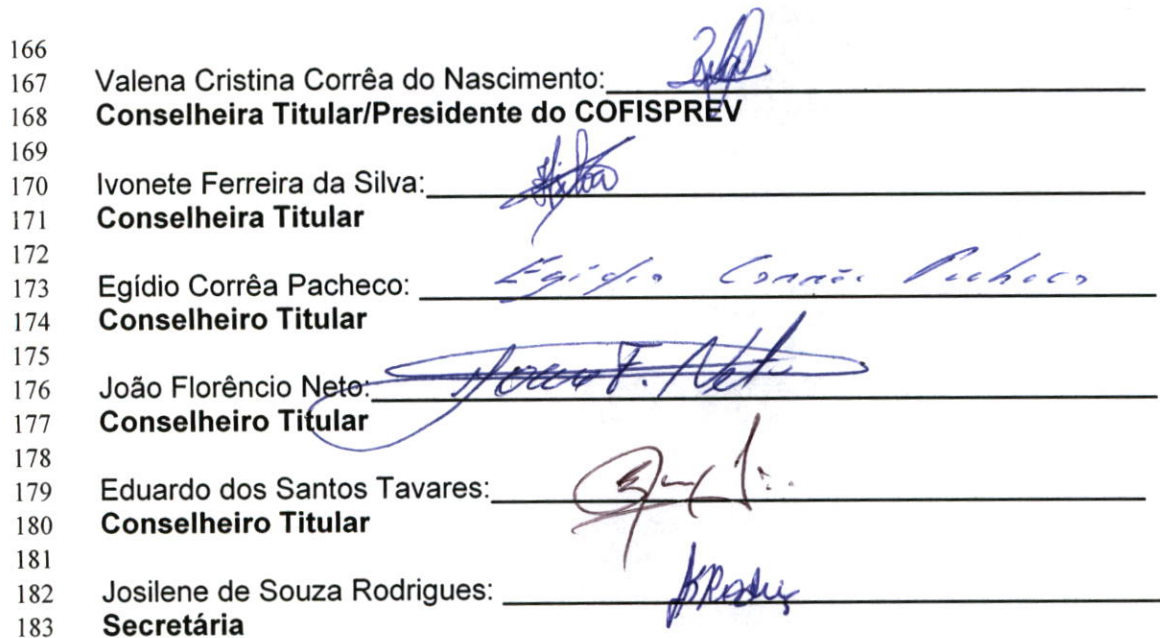 166
167 Valena Cristina Corrêa do Nascimento:
168 Conselheira Titular/Presidente do COFISPREV
169
170 Ivonete Ferreira da Silva:
171 Conselheira Titular
172
173 Egídio Corrêa Pacheco: Egídio Corrêa Pacheco
174 Conselheiro Titular
175
176 João Florêncio Neto: João F. Neto
177 Conselheiro Titular
178
179 Eduardo dos Santos Tavares:
180 Conselheiro Titular
181
182 Josilene de Souza Rodrigues:
183 Secretária